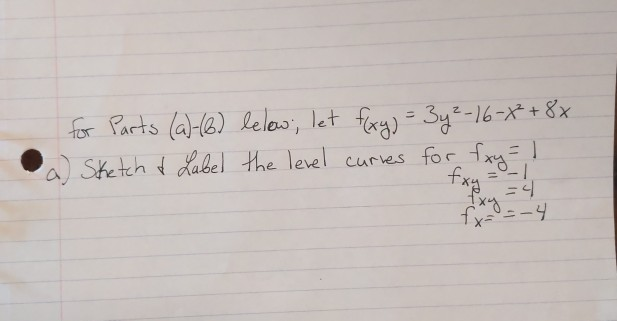 for Parts (a)-(b) below, let f(xy) = 3y²-16-x²+8x
a) Sketch & Label the level curves for fxy = 1
fxy = -1
fxy = 4
fx= = -4